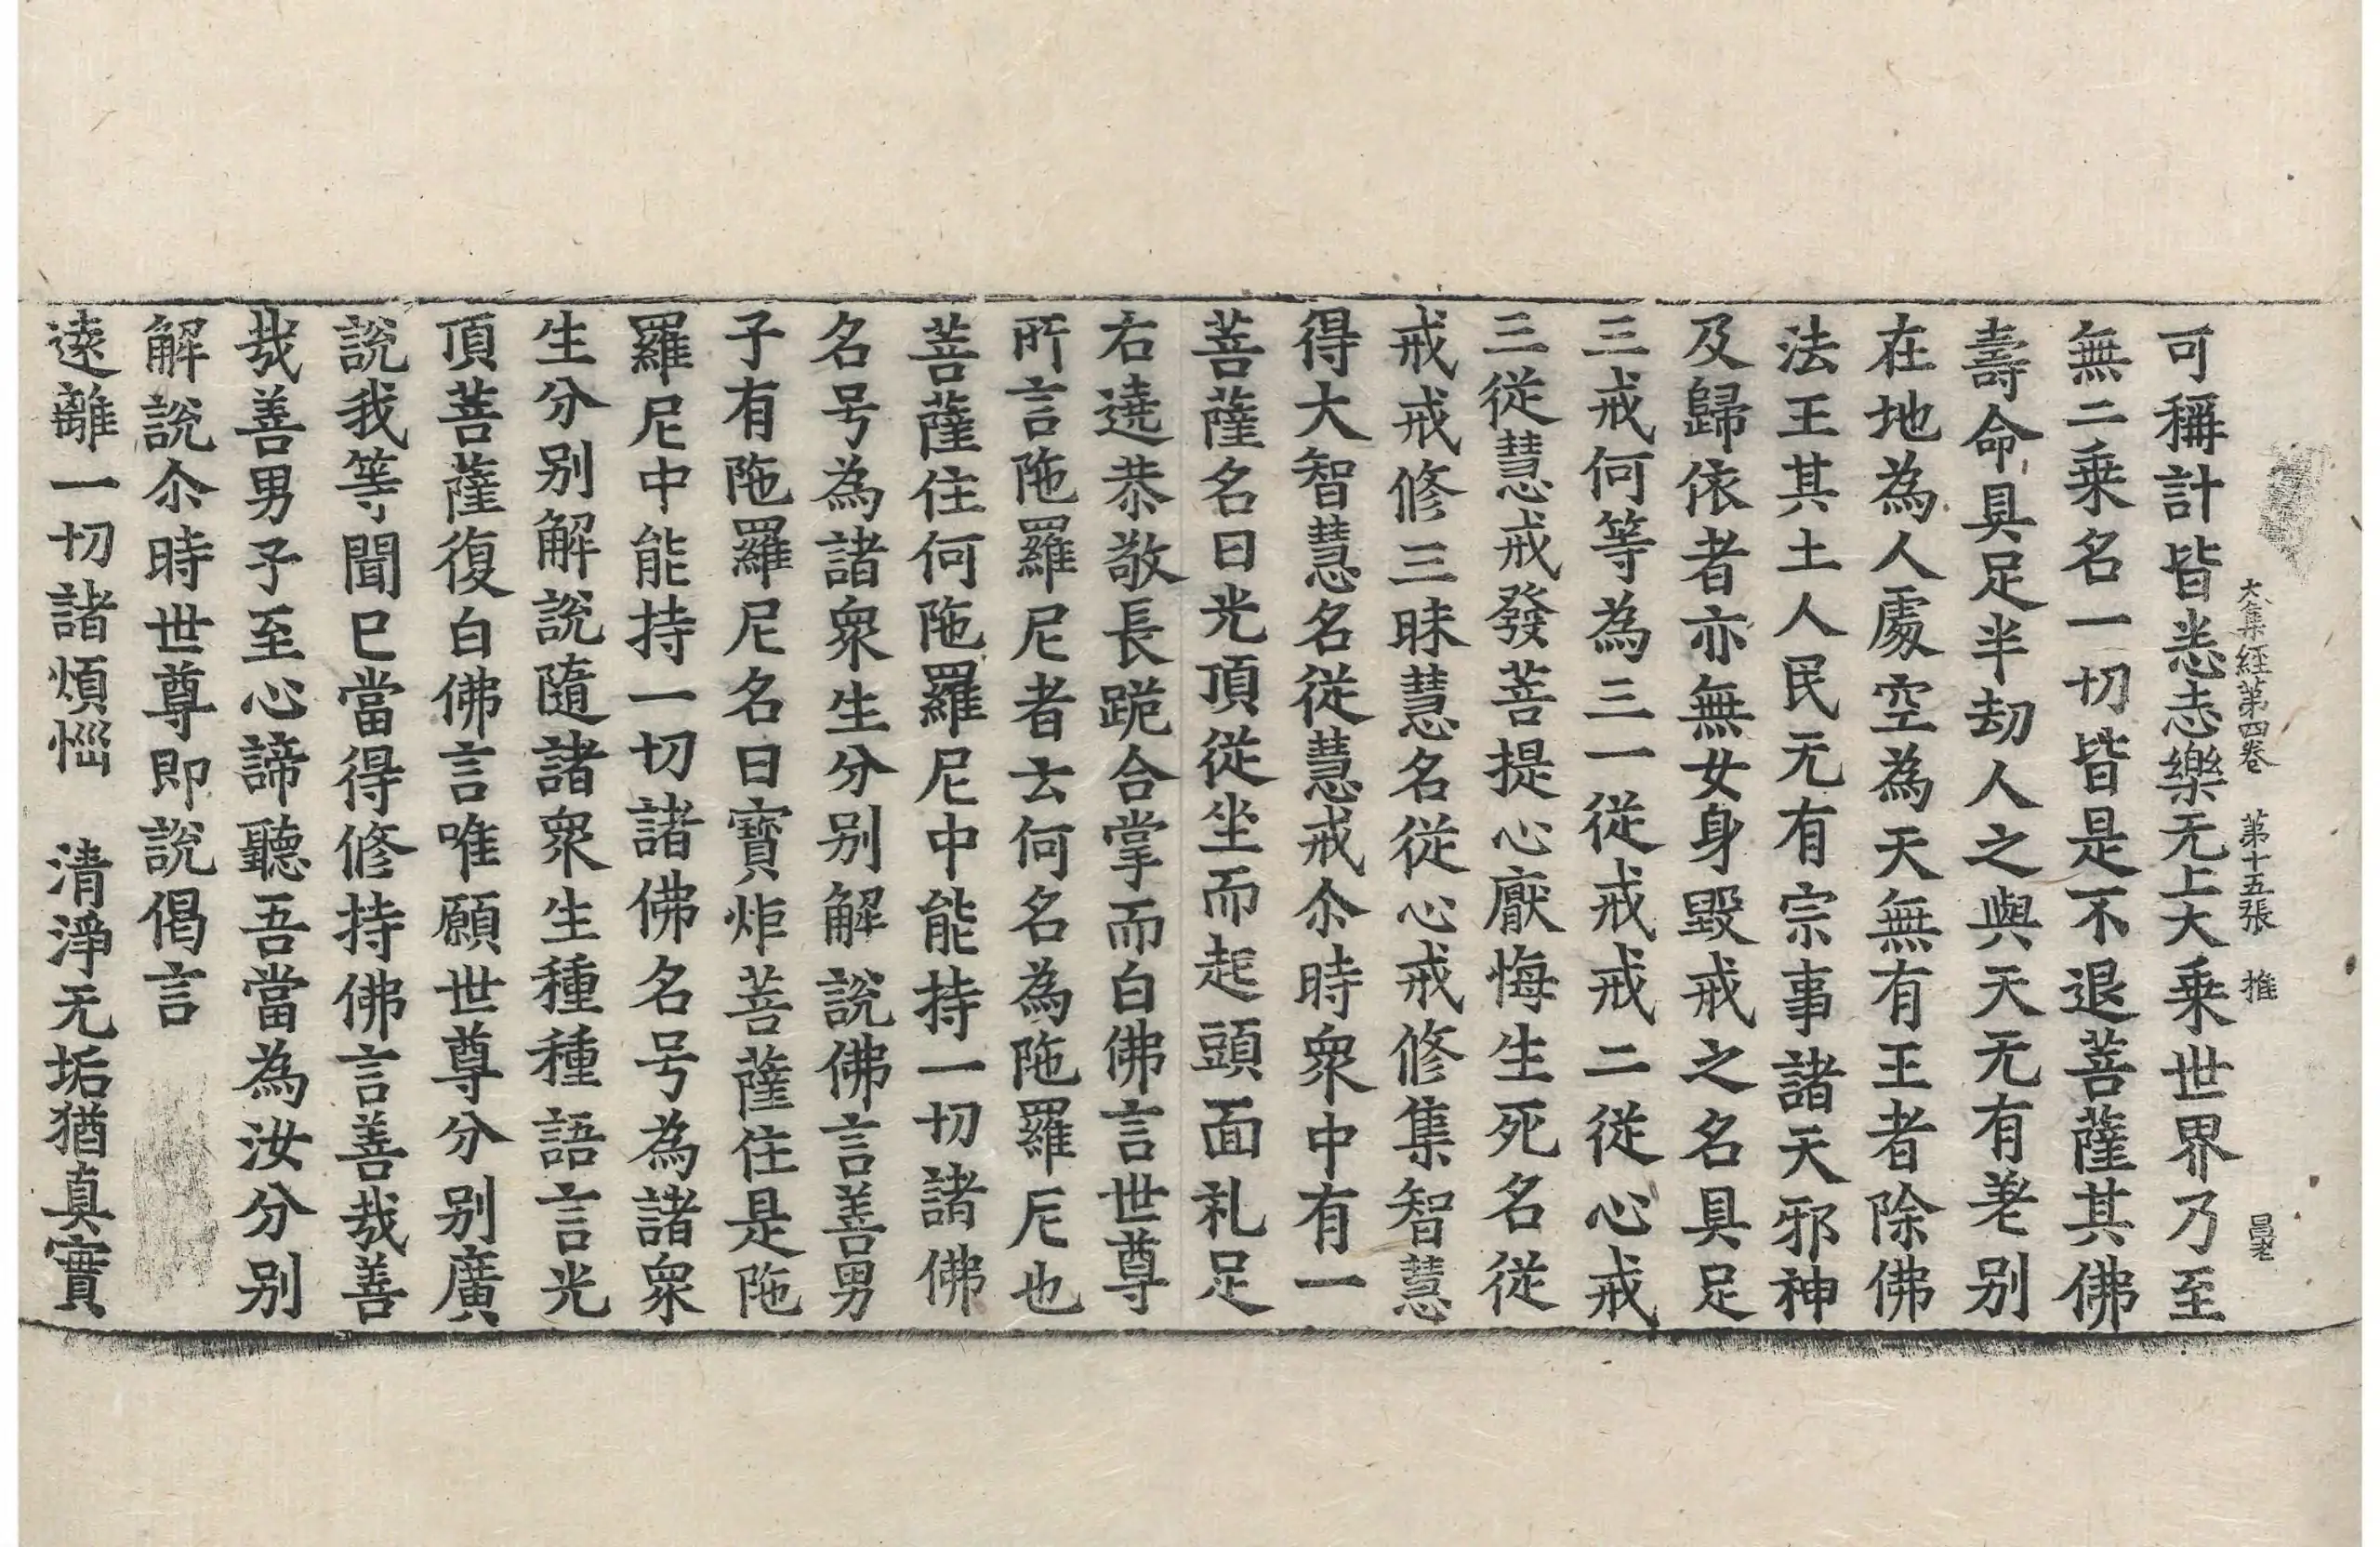 大集經第四卷　第十五張　推　昌老
可稱計皆悉志樂无上大乘世界乃至
無二乘名一切皆是不退菩薩其佛
壽命具足半劫人之與天无有差別
在地為人處空為天無有王者除佛
法王其土人民无有宗事諸天邪神
及歸依者亦無女身毀戒之名具足
三戒何等為三一從戒戒二從心戒
三從慧戒發菩提心厭悔生死名從
戒戒修三昧慧名從心戒修集智慧
得大智慧名從慧戒尒時衆中有一
菩薩名日光頂從坐而起頭面礼足
右遶恭敬長跪合掌而白佛言世尊
所言陁羅尼者云何名為陁羅尼也
菩薩住何陁羅尼中能持一切諸佛
名号為諸衆生分別解說佛言善男
子有陁羅尼名曰寶炬菩薩住是陁
羅尼中能持一切諸佛名号為諸衆
生分別解說隨諸衆生種種語言光
頂菩薩復白佛言唯願世尊分別廣
說我等聞已當得修持佛言善哉善
哉善男子至心諦聽吾當為汝分別
解說尒時世尊即說偈言
遠離一切諸煩惱　清淨无垢猶真實